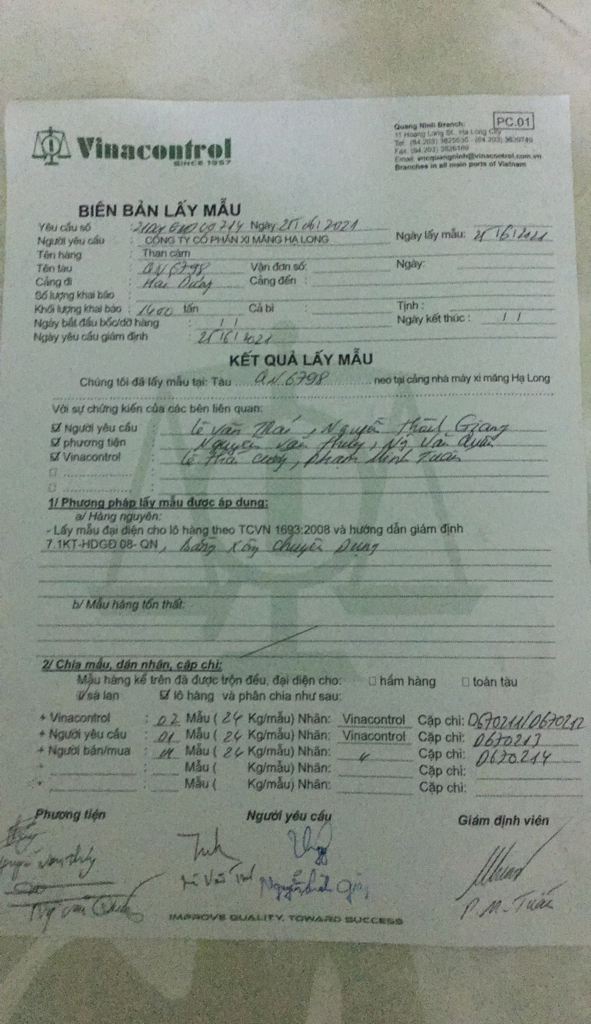 Vinacontrol
SINCE 1957
Quang Ninh Branch:
PC.01
11 Hoang Long St., Ha Long City
Branches in all main ports of Vietnam
BIÊN BẢN LẤY MẪU
Yêu cầu số : Ngày 25/06/2021
Người yêu cầu : CÔNG TY CỔ PHẦN XI MĂNG HẠ LONG Ngày lấy mẫu: 25/6/2021
Tên hàng : Than cám
Tên tàu : QN 6798 Vận đơn số: Ngày:
Cảng đi : Hải Dương Cảng đến :
Số lượng khai báo :
Khối lượng khai báo : 1400 tấn Cả bì : Tịnh :
Ngày bắt đầu bốc/dỡ hàng : / / Ngày kết thúc : / /
Ngày yêu cầu giám định 25/6/2021
KẾT QUẢ LẤY MẪU
Chúng tôi đã lấy mẫu tại: Tàu QN 6798 neo tại cảng nhà máy xi măng Hạ Long
Với sự chứng kiến của các bên liên quan:
☑ Người yêu cầu : Lê Văn Thái, Nguyễn Giang
☑ phương tiện : Nguyễn Văn Thủy, Ng Văn Quân
☑ Vinacontrol : Lê Thái Cường, Phạm Minh Tuấn
☐ :
☐ :
1/ Phương pháp lấy mẫu được áp dụng:
a/ Hàng nguyên:
- Lấy mẫu đại diện cho lô hàng theo TCVN 1693:2008 và hướng dẫn giám định
7.1KT-HDGĐ 08- QN, bằng xẻng chuyên dụng
b/ Mẫu hàng tổn thất:
2/ Chia mẫu, dán nhãn, cặp chì:
Mẫu hàng kể trên đã được trộn đều, đại diện cho: ☐ hầm hàng ☐ toàn tàu
☑ sà lan ☑ lô hàng và phân chia như sau:
+ Vinacontrol : 02 Mẫu ( 24 Kg/mẫu) Nhãn: Vinacontrol Cặp chì: 0670211/0670212
+ Người yêu cầu : 01 Mẫu ( 24 Kg/mẫu) Nhãn: Vinacontrol Cặp chì: 0670213
+ Người bán/mua : 01 Mẫu ( 24 Kg/mẫu) Nhãn: " Cặp chì: 0670214
+ : Mẫu ( Kg/mẫu) Nhãn: Cặp chì:
+ : Mẫu ( Kg/mẫu) Nhãn: Cặp chì:
Phương tiện Người yêu cầu Giám định viên
P.M. Tuấn
IMPROVE QUALITY, TOWARD SUCCESS